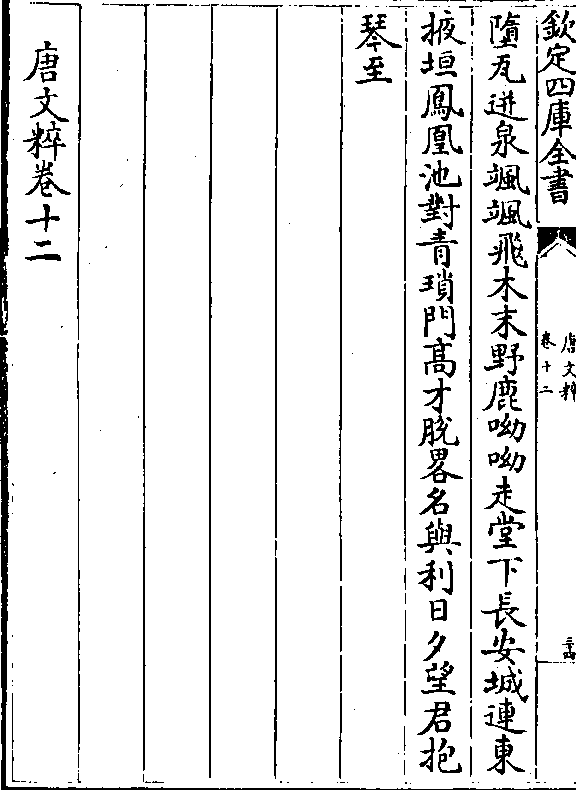 欽定四庫全書
唐文粹
卷十二
三四
墮瓦迸泉颯颯飛木末野鹿呦呦走堂下長安城連東
掖垣鳳凰池對青瑣門髙才脱畧名與利日夕望君抱
琴至
唐文粹卷十二